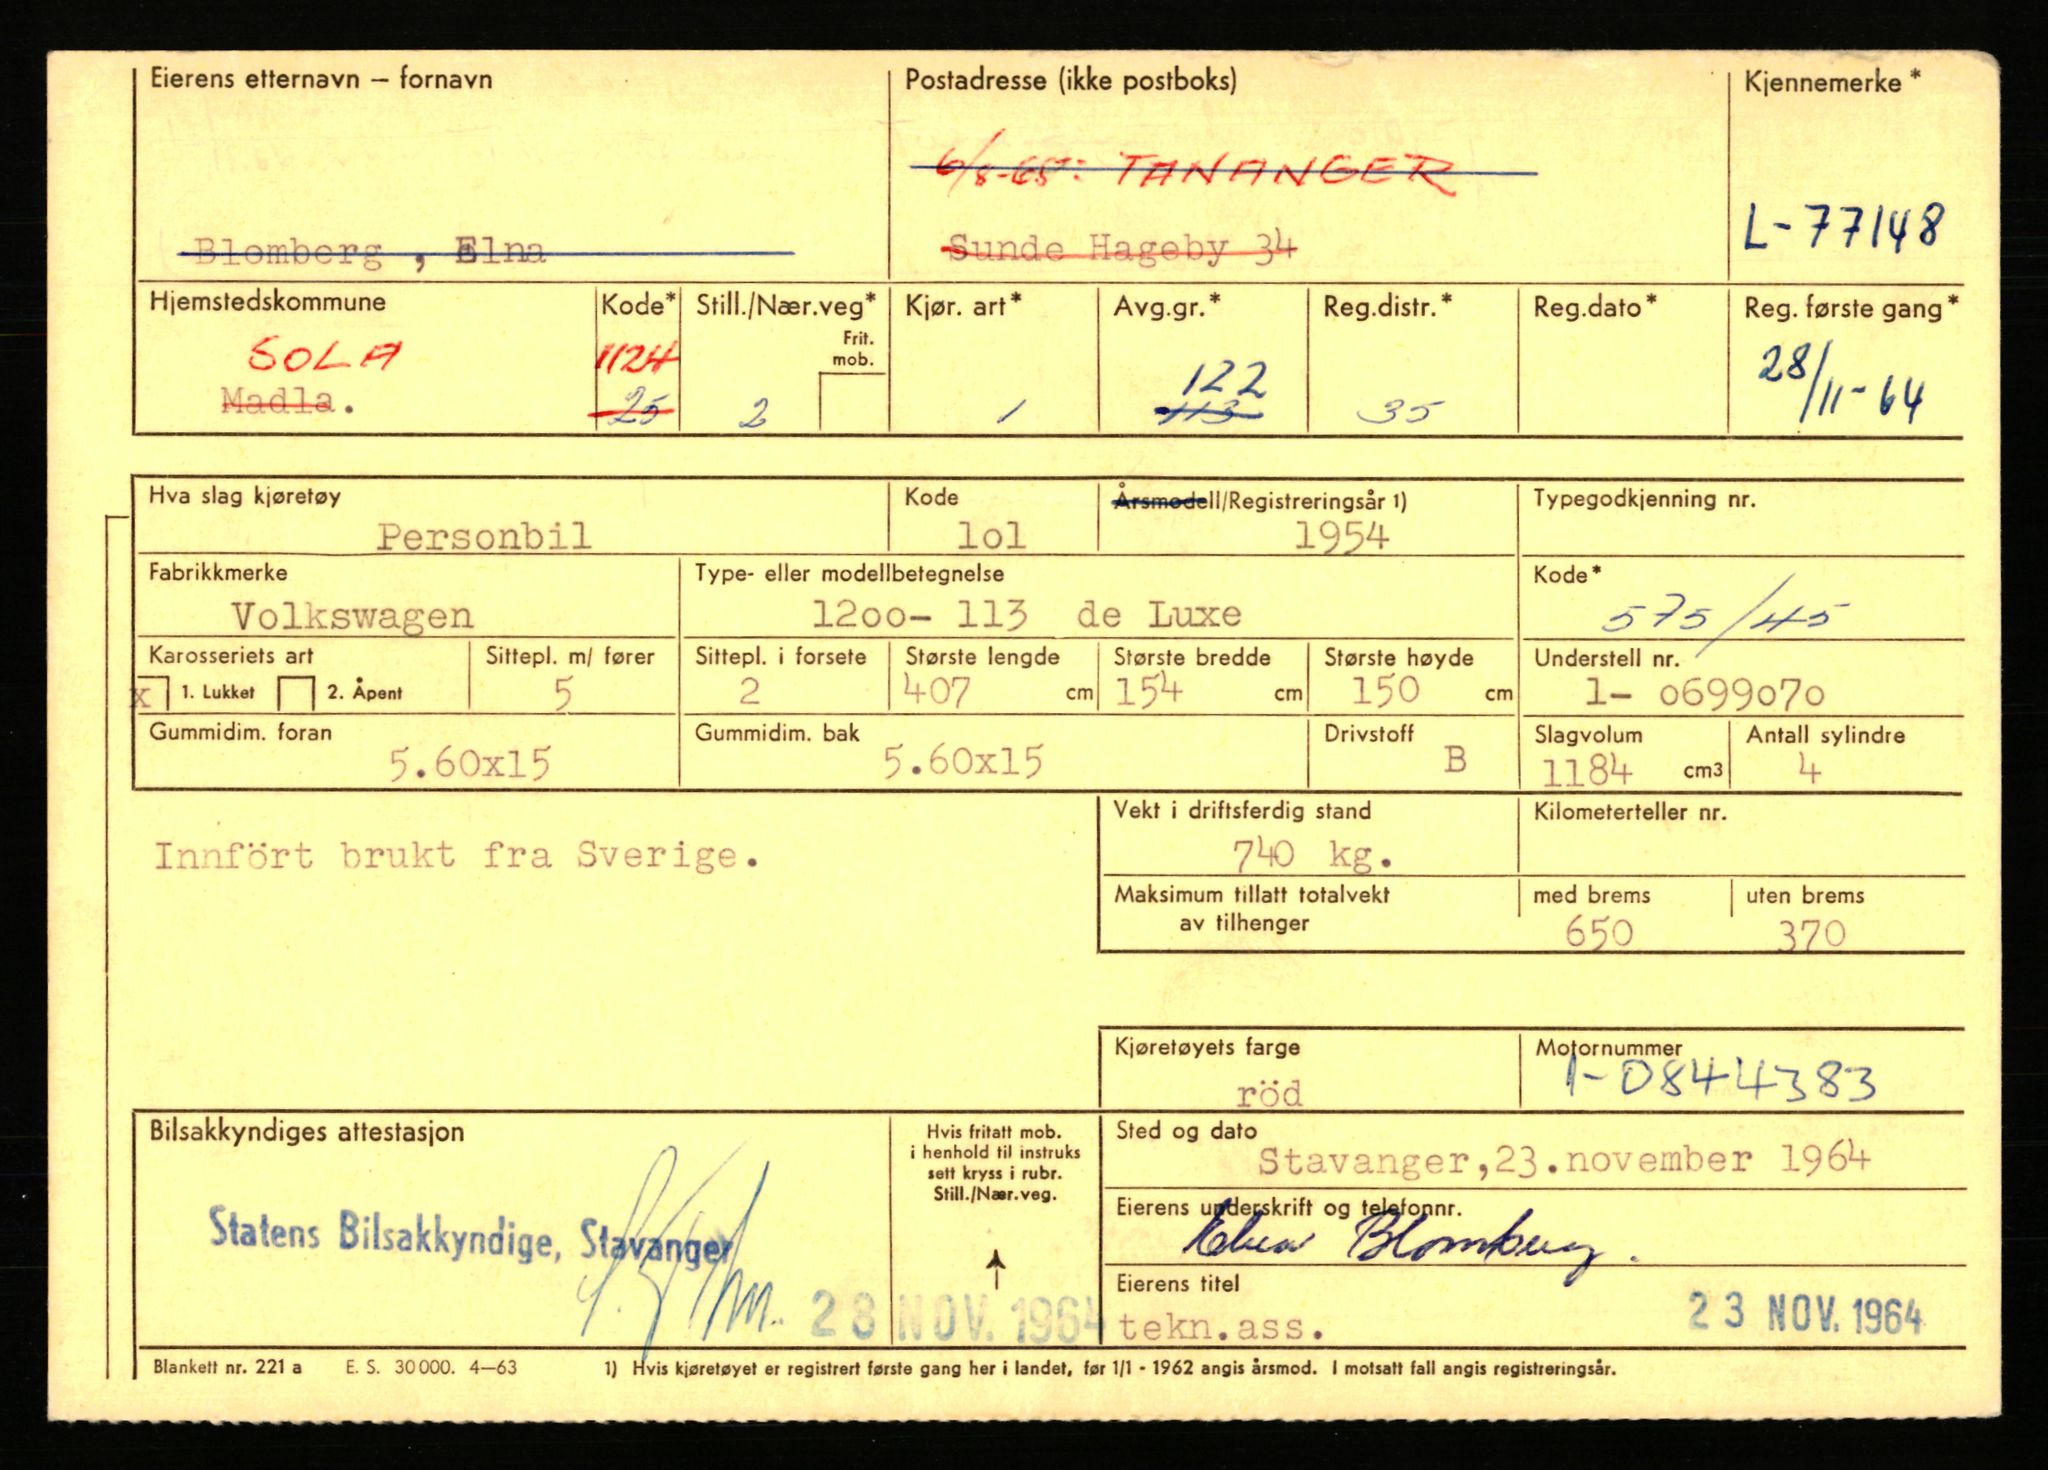 Eierens etternavn – fornavn
Blomberg, Elna
Postadresse (ikke postboks)
6/8-65: TANANGER
Sunde Hageby 34
Kjennemerke*
L-77148
Hjemstedskommune
SOLA
Madla.
Kode*
1124
25
Still./Nær.veg*
Frit.
mob.
2
Kjør. art*
1
Avg.gr.*
122
113
Reg.distr.*
35
Reg.dato*
Reg. første gang*
28/11-64
Hva slag kjøretøy
Personbil
Kode
lol
Årsmodell/Registreringsår 1)
1954
Typegodkjenning nr.
Fabrikkmerke
Volkswagen
Type- eller modellbetegnelse
12oo- 113 de Luxe
Kode*
575/45
Karosseriets art
x 1. Lukket 2. Åpent
Sittepl. m/ fører
5
Sittepl. i forsete
2
Største lengde
407 cm
Største bredde
154 cm
Største høyde
150 cm
Understell nr.
1- o699o70
Gummidim. foran
5.60x15
Gummidim. bak
5.60x15
Drivstoff
B
Slagvolum
1184 cm3
Antall sylindre
4
Innfört brukt fra Sverige.
Vekt i driftsferdig stand
740 kg.
Kilometerteller nr.
Maksimum tillatt totalvekt
av tilhenger
med brems
650
uten brems
370
Kjøretøyets farge
röd
Motornummer
1-0844383
Bilsakkyndiges attestasjon
Statens Bilsakkyndige, Stavanger
28 NOV. 1964
Hvis fritatt mob.
i henhold til instruks
sett kryss i rubr.
Still./Nær.veg.
Sted og dato
Stavanger,23.november 1964
Eierens underskrift og telefonnr.
Elna Blomberg.
Eierens titel
tekn.ass.
23 NOV. 1964
Blankett nr. 221 a E. S. 30 000. 4–63 1) Hvis kjøretøyet er registrert første gang her i landet, før 1/1 - 1962 angis årsmod. I motsatt fall angis registreringsår.